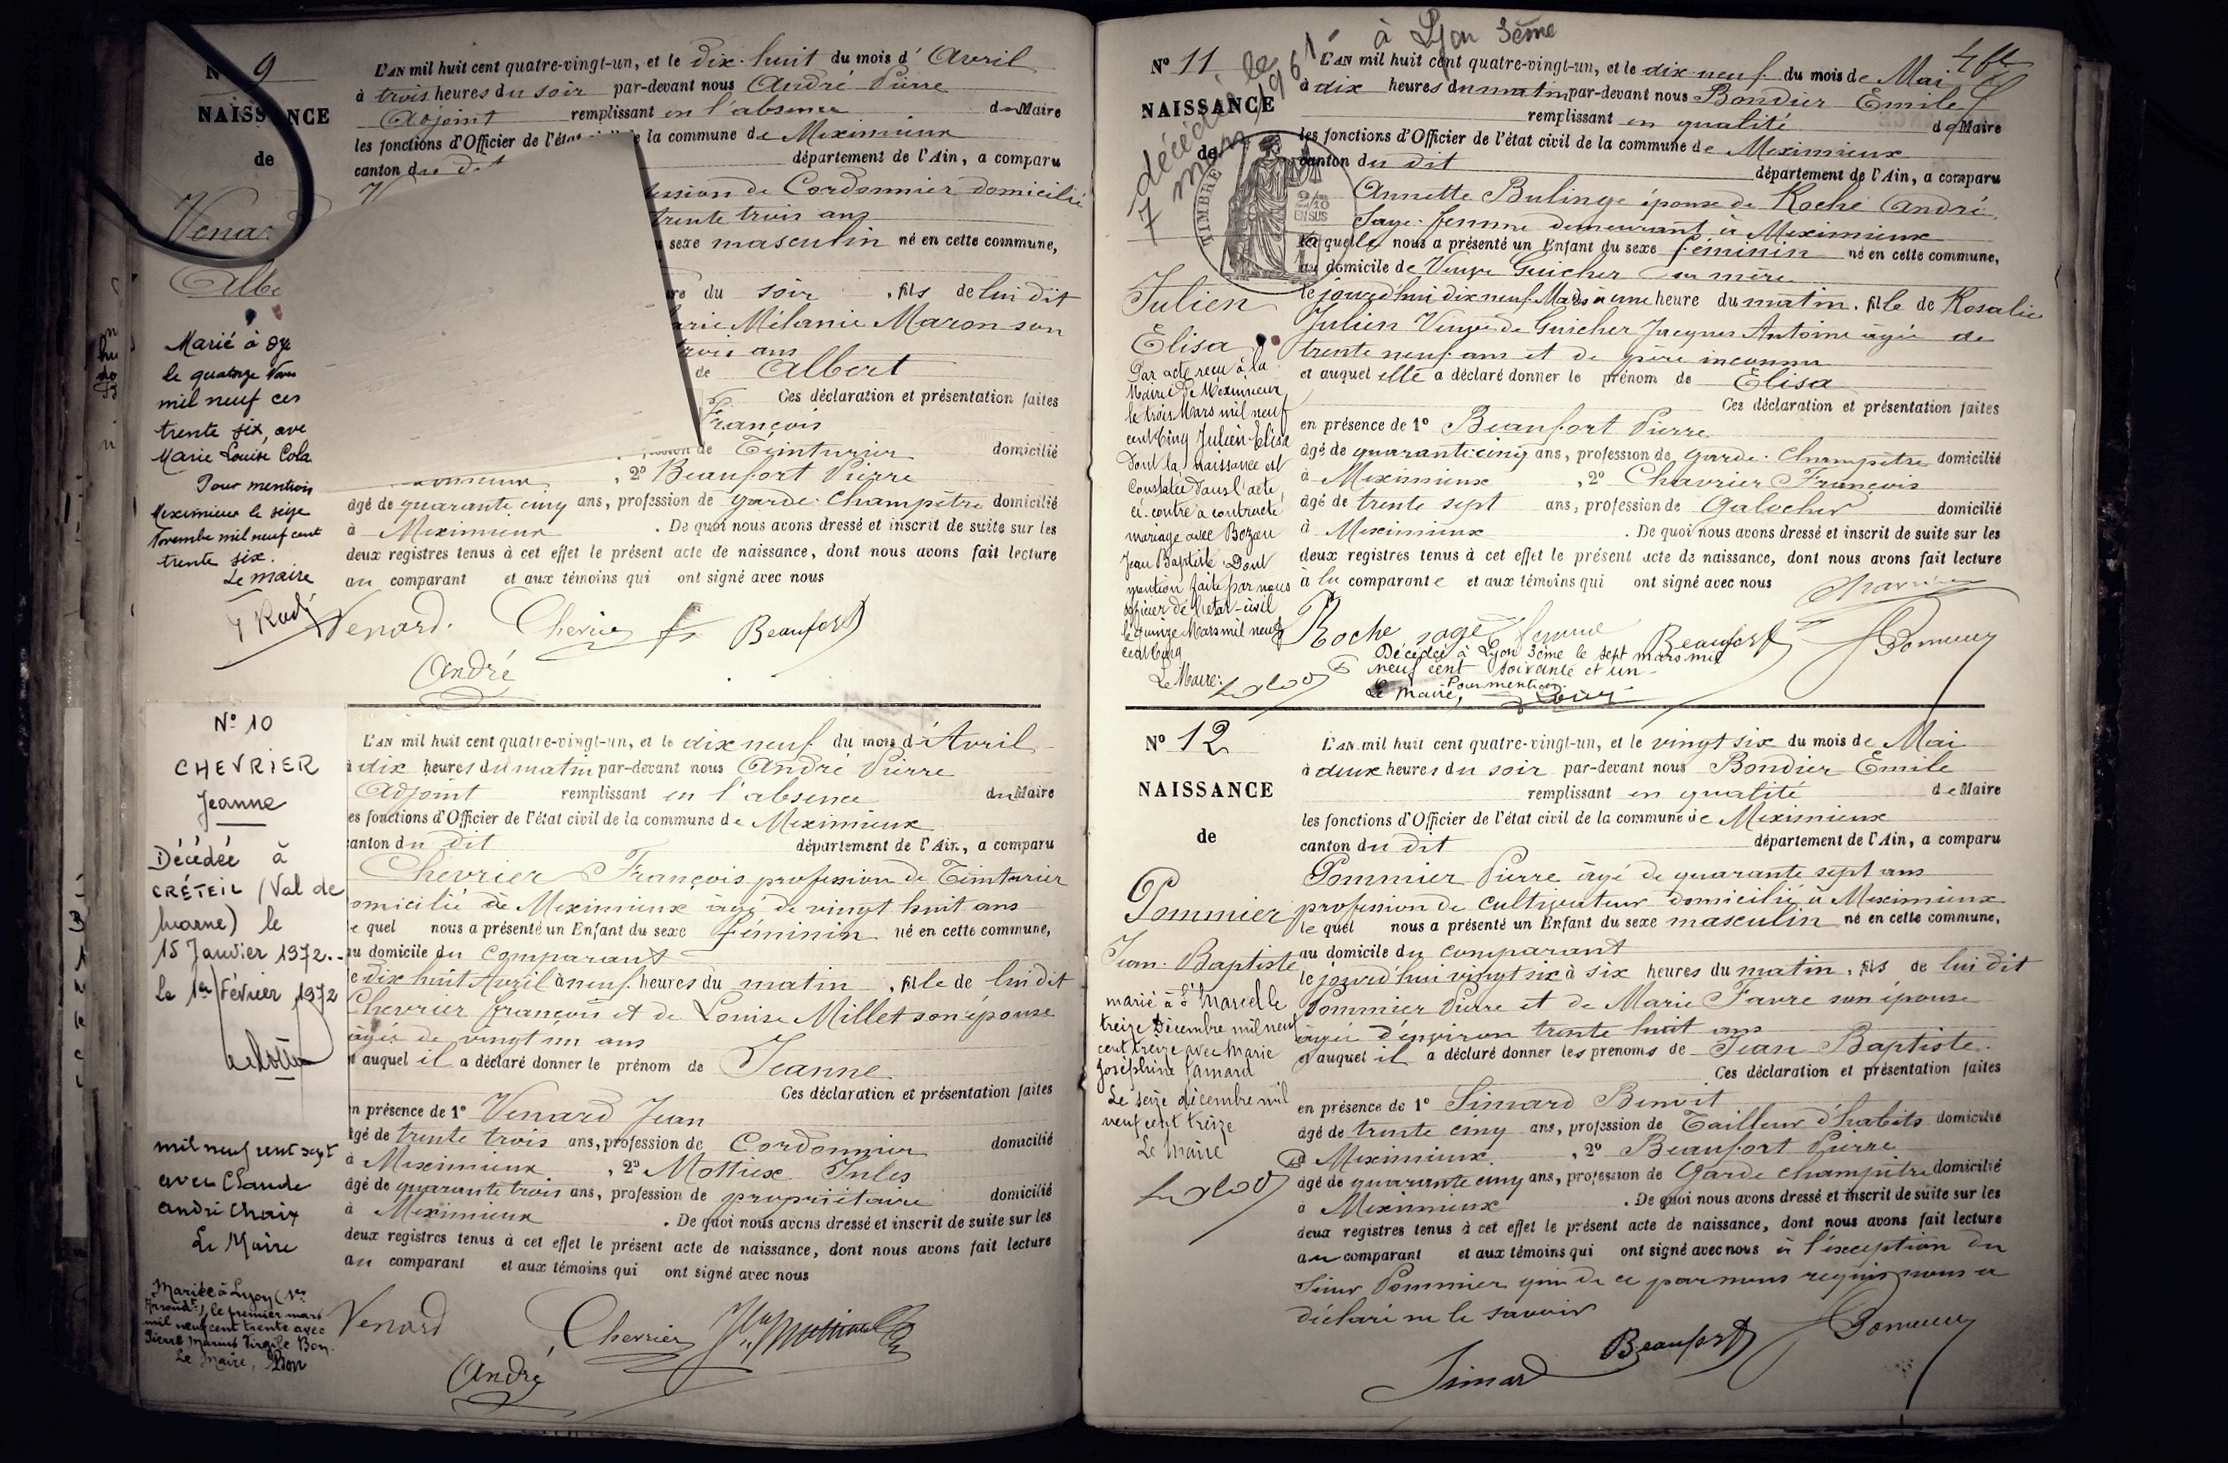 N° 9
NAISSANCE
de
Vena
Albe
Marié à Oye
le quatorze Nov
mil neuf cen
trente six, ave
Marie Louise Cola
Pour mention
Meximieux le seize
Novembre mil neuf cent
trente six.
Le maire
L'AN mil huit cent quatre-vingt-un, et le dix-huit du mois d'Avril
à trois heures du soir par-devant nous André Pierre
Adjoint remplissant en l'absence du Maire
les fonctions d'Officier de l'état de la commune de Meximieux
canton du dit département de l'Ain, a comparu
ession de Cordonnier domicilié
trente trois ans
sexe masculin né en cette commune,
re du soir, fils de lui dit
arie Mélanie Maron son
trois ans
de Albert
Ces déclaration et présentation faites
François
de Teinturier domicilié
, 2° Beaufort Pierre
âgé de quarante cinq ans, profession de garde-champêtre domicilié
à Meximieux. De quoi nous avons dressé et inscrit de suite sur les
deux registres tenus à cet effet le présent acte de naissance, dont nous avons fait lecture
au comparant et aux témoins qui ont signé avec nous
Venard. Chevrier f Beaufort
André
N° 10
CHEVRIER
Jeanne
Décédée à
CRÉTEIL (Val de
Marne) le
15 Janvier 1972..
Le 1er Février 1972
mil neuf cent sept
avec Claude
andré Chaix
Le Maire
Mariée à Lyon (1er
Arrondt), le premier mars
mil neuf cent trente avec
Pierre Marius Virgile Bon.
Le Maire, Bon
L'AN mil huit cent quatre-vingt-un, et le dix neuf du mois d'Avril
à dix heures du matin par-devant nous André Pierre
Adjoint remplissant en l'absence du Maire
es fonctions d'Officier de l'état civil de la commune de Meximieux
canton du dit département de l'Ain, a comparu
Chevrier François profession de Teinturier
omicilié à Meximieux âgé de vingt huit ans
e quel nous a présenté un Enfant du sexe féminin né en cette commune,
au domicile du comparant
e dix huit Avril à neuf heures du matin, fille de lui dit
Chevrier françois et de Louise Millet son épouse
âgée de vingt un ans
et auquel il a déclaré donner le prénom de Jeanne
Ces déclaration et présentation faites
en présence de 1° Venard Jean
âgé de trente trois ans, profession de Cordonnier domicilié
à Meximieux, 2° Mottiex Jules
âgé de quarante trois ans, profession de propriétaire domicilié
à Meximieux. De quoi nous avons dressé et inscrit de suite sur les
deux registres tenus à cet effet le présent acte de naissance, dont nous avons fait lecture
au comparant et aux témoins qui ont signé avec nous
Venard Chevrier
André
à Lyon 3ème
décédé le
7 mars 1961
N° 11
NAISSANCE
de
TIMBRE
Julien
Elisa
Par acte reçu à la
Mairie de Meximieux
le trois Mars mil neuf
cent cinq Julien Elisa
dont la naissance est
constatée dans l'acte
ci-contre a contracté
mariage avec Bozau
Jean Baptiste. Dont
mention faite par nous
officier de l'état-civil
le quinze Mars mil neuf
cent cinq
Le Maire:
L'AN mil huit cent quatre-vingt-un, et le dix neuf du mois de Mai
à dix heures du matin par-devant nous Bondier Emile
remplissant en qualité de Maire
les fonctions d'Officier de l'état civil de la commune de Meximieux
canton du dit département de l'Ain, a comparu
Annette Bulinge épouse de Roche André
Sage-femme demeurant à Meximieux
laquelle nous a présenté un Enfant du sexe féminin né en cette commune,
au domicile de Veuve Guicher sa mère
le jourd'hui dix neuf Mai à une heure du matin, fille de Rosalie
Julien Veuve de Guicher Jacques Antoine âgée de
trente neuf ans et de père inconnu
et auquel elle a déclaré donner le prénom de Elisa
Ces déclaration et présentation faites
en présence de 1° Beaufort Pierre
âgé de quarante cinq ans, profession de garde-champêtre domicilié
à Meximieux, 2° Chavrier François
âgé de trente sept ans, profession de Galocher domicilié
à Meximieux. De quoi nous avons dressé et inscrit de suite sur les
deux registres tenus à cet effet le présent acte de naissance, dont nous avons fait lecture
à la comparante et aux témoins qui ont signé avec nous
Roche sage femme Beaufort
Décédée à Lyon 3ème le sept mars mil
neuf cent soixante et un
Pour mention
Le Maire,
N° 12
NAISSANCE
de
Pommier
Jean-Baptiste
marié à St Marcel le
treize Décembre mil neuf
cent treize avec Marie
Joséphine Jamard
Le seize décembre mil
neuf cent treize
Le Maire
L'AN mil huit cent quatre-vingt-un, et le vingt six du mois de Mai
à deux heures du soir par-devant nous Bondier Emile
remplissant en qualité de Maire
les fonctions d'Officier de l'état civil de la commune de Meximieux
canton du dit département de l'Ain, a comparu
Pommier Pierre âgé de quarante sept ans
profession de cultivateur domicilié à Meximieux
le quel nous a présenté un Enfant du sexe masculin né en cette commune,
au domicile du comparant
le jourd'hui vingt six à six heures du matin, fils de lui dit
Pommier Pierre et de Marie Favre son épouse
âgée d'environ trente huit ans
et auquel il a déclaré donner les prénoms de Jean Baptiste
Ces déclaration et présentation faites
en présence de 1° Simard Benoit
âgé de trente cinq ans, profession de Tailleur d'habits domicilié
à Meximieux, 2° Beaufort Pierre
âgé de quarante cinq ans, profession de Garde champêtre domicilié
à Meximieux. De quoi nous avons dressé et inscrit de suite sur les
deux registres tenus à cet effet le présent acte de naissance, dont nous avons fait lecture
au comparant et aux témoins qui ont signé avec nous à l'exception du
sieur Pommier qui de ce par nous requis nous a
déclaré ne le savoir
Simard Beaufort